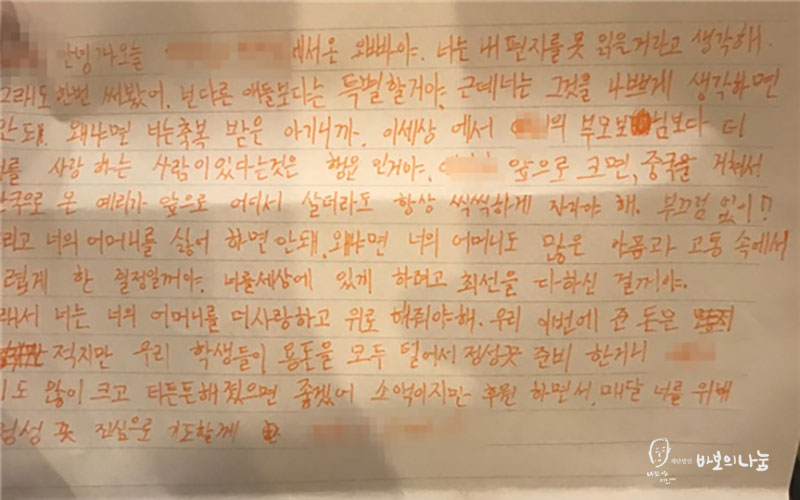 안녕 나 오늘 에서온 오빠야. 너는 내 편지를 못 읽을거라고 생각해.
그래도 한번 써봤어. 넌 다른 애들보다는 특별할거야. 근데 너는 그것을 나쁘게 생각하면
안돼. 왜냐면 너는 축복 받은 아기니까. 이세상 에서 의 부모보 님보다 더
를 사랑 하는 사람이 있다는것은 행운 인거야. 앞으로 크면, 중국을 거쳐서
한국으로 온 예리가 앞으로 어디서 살더라도 항상 씩씩하게 자라야 해. 부끄럼 없이!
그리고 너의 어머니를 싫어 하면 안돼. 왜냐면 너의 어머니도 많은 아픔과 고통 속에서
렵게 한 결정일꺼야. 너를 세상에 있게 하려고 최선을 다하신 걸꺼야.
래서 너는 너의 어머니를 더 사랑하고 위로 해줘야해. 우리 이번에 준 돈은
적지만 우리 학생들이 용돈을 모두 털어서 정성껏 준비 한거니
도 많이 크고 더 든든해 졌으면 좋겠어 소액이지만 후원 하면서, 매달 너를 위해
정성 껏 진심으로 기도할게
재단법인 바보의나눔